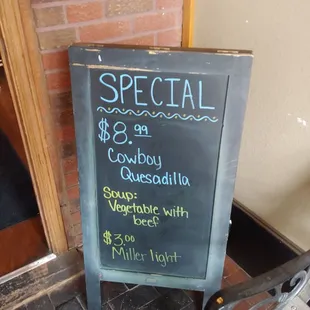 SPECIAL
$8.99
Cowboy
Quesadilla
Soup:
Vegetable with
beef
$3.00
Miller light